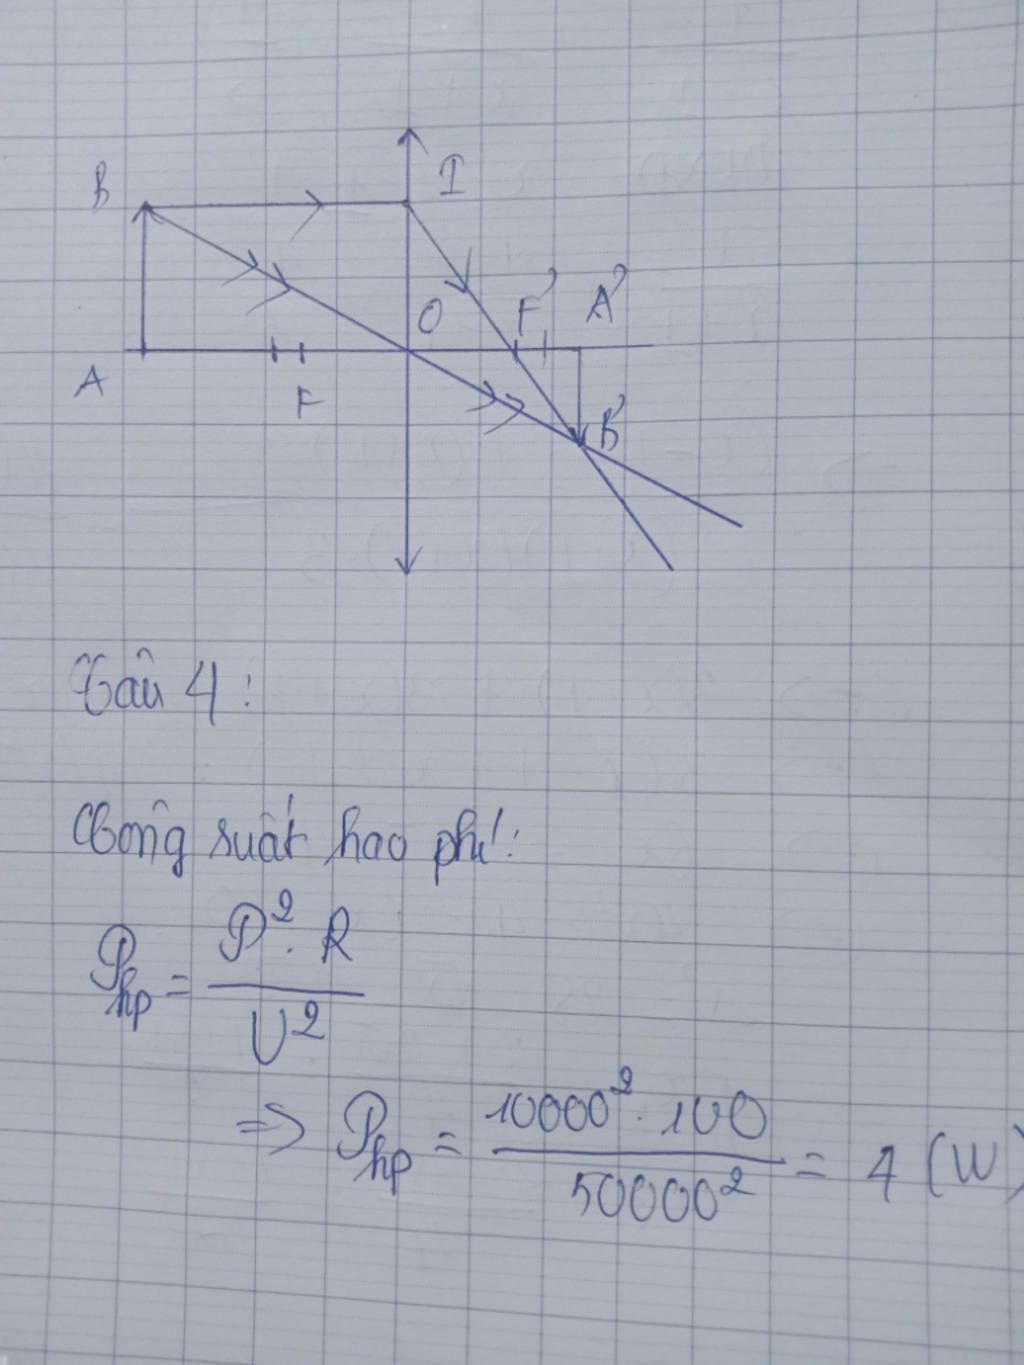 B I
O F' A'
A F B'
Câu 4:
Công suất hao phí:
P_hp = P². R / U²
=> P_hp = 10000². 100 / 50000² = 4 (W)